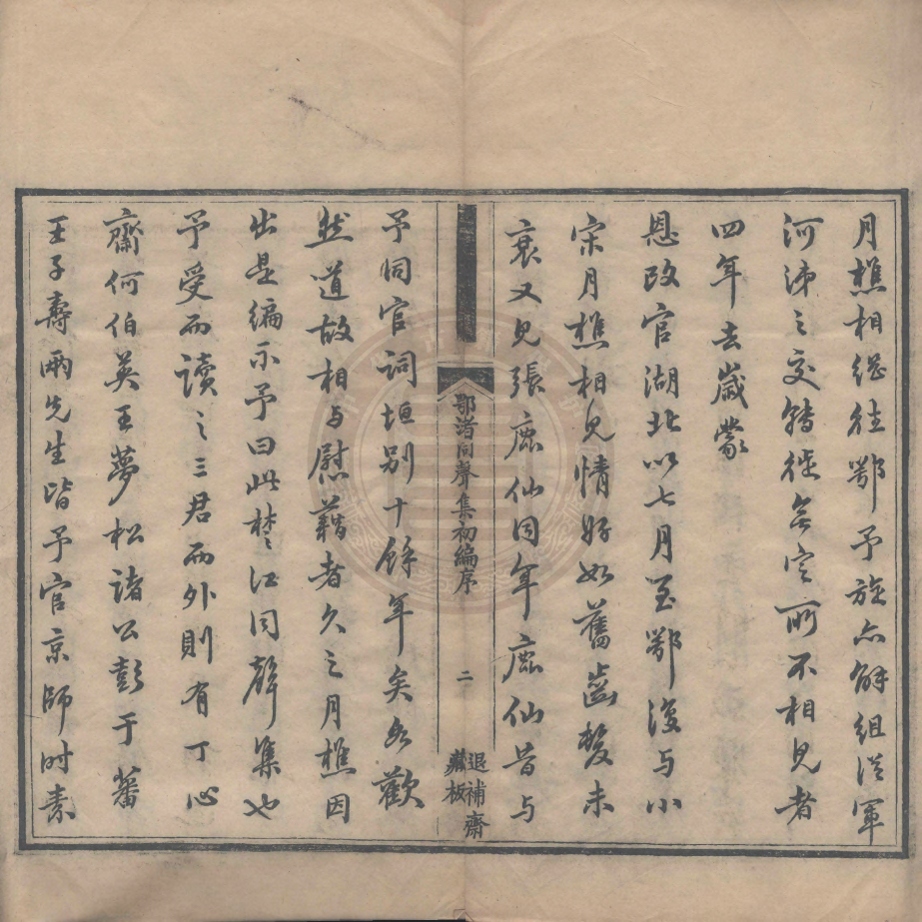 月樵相繼往鄂予旋亦解組從軍
河沛之交蹤徙無定所不相見者
四年去歲蒙
恩改官湖北以七月至鄂復与小
宋月樵相見情好如舊齒髮未
衰又見張鹿仙同年鹿仙昔与
鄂渚同聲集初編序
二
退補齋
藏板
予同官詞垣別十餘年矣相歡
然道故相与慰藉者久之月樵因
出是編示予曰此楚江同聲集也
予受而讀之三君而外則有丁心
齋何伯英王夢松諸公彭于蕃
王子壽兩先生皆予官京師時素